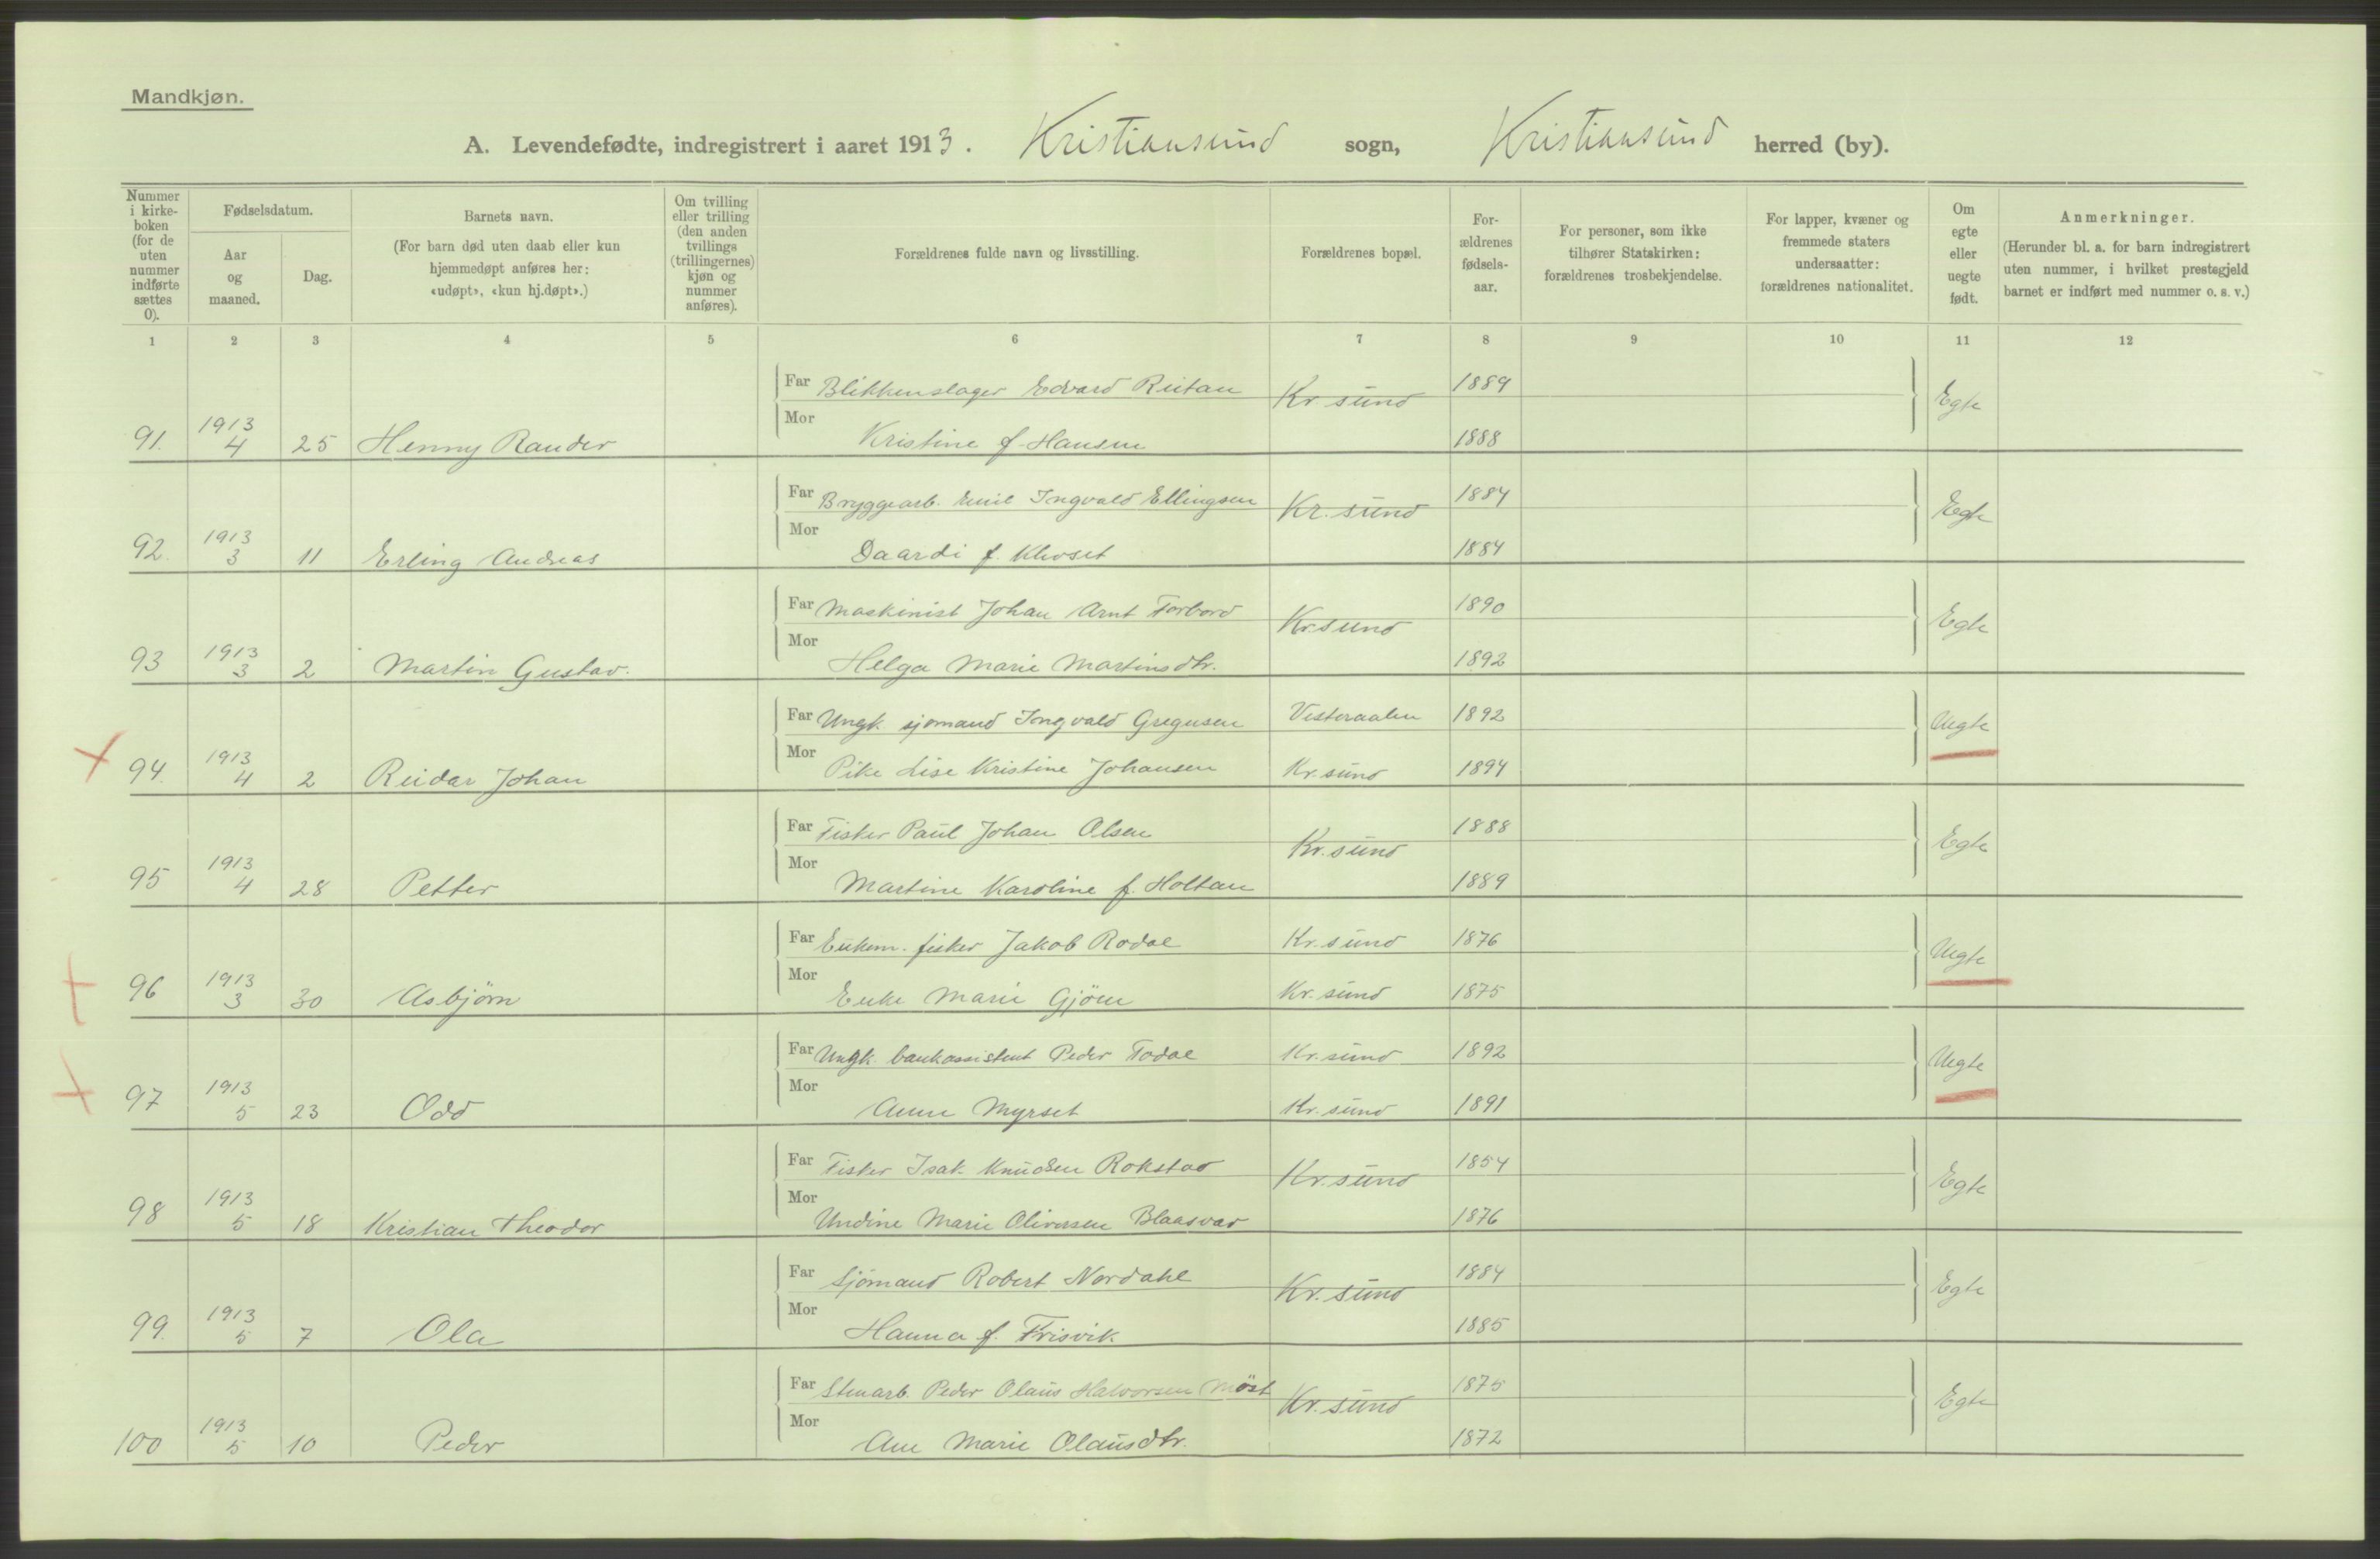 Mandkjøn.
A. Levendefødte, indregistrert i aaret 1913. Kristiansund sogn, Kristiansund herred (by).
Nummer i kirke-boken (for de uten nummer indførte sættes 0).
Fødselsdatum.
Aar og maaned.
Dag.
Barnets navn.
(For barn død uten daab eller kun hjemmedøpt anføres her: «udøpt», «kun hj.døpt».)
Om tvilling eller trilling (den anden tvillings (trillingernes) kjøn og nummer anføres).
Forældrenes fulde navn og livsstilling.
Forældrenes bopæl.
For-ældrenes fødsels-aar.
For personer, som ikke tilhører Statskirken: forældrenes trosbekjendelse.
For lapper, kvæner og fremmede staters undersaatter: forældrenes nationalitet.
Om egte eller uegte født.
Anmerkninger.
(Herunder bl. a. for barn indregistrert uten nummer, i hvilket prestegjeld barnet er indført med nummer o. s. v.)
1 2 3 4 5 6 7 8 9 10 11 12
Far Blikkenslager Edvard Reitan Kr sund 1889 Egte
91. 1913 4 25 Henny Rander Mor Kristine f. Hansen 1888
Far Bryggearb. Emil Ingvald Ellingsen Kr. sund 1884 Egte
92. 1913 3 11 Erling Andreas Mor Daardi f. 1884
Far Maskinist Johan Arnt Forbord Kr.sund 1890 Egte
93 1913 3 2 Martin Gustav. Mor Helga Marie Martinsdtr. 1892
Far Ungk. sjømand Ingvald Gregusen Vesteraalen 1892 Uegte
94. 1913 4 2 Reidar Johan Mor Pike Lise Kristine Johansen Kr. sund 1894
Far Fisker Paul Johan Olsen Kr. sund 1888 Egte
95 1913 4 28 Petter Mor Martine Karoline f. Holtan 1889
Far Enkem. fisker Jakob Rodal Kr. sund 1876 Uegte
96 1913 3 30 Asbjørn Mor Enke Marie Gjöen Kr. sund 1875
Far Ungk. bankassistent Peder Todal Kr. sund 1892 Uegte
97 1913 5 23 Odd Mor Anne Myrset Kr. sund 1891
Far Fisker Isak Knudsen Rokstad Kr. sund 1854 Egte
98 1913 5 18 Kristian Theodor Mor Undine Marie Oliversen Blaasvar 1876
Far Sjömand Robert Nordahl Kr. sund 1884 Egte
99. 1913 5 7 Ola Mor Hanna f. Frisvik 1885
Far Stenarb. Peder Olaus Halvorsen Möst Kr. sund 1875 Egte
100 1913 5 10 Peder Mor Ane Marie Olausdtr. 1872